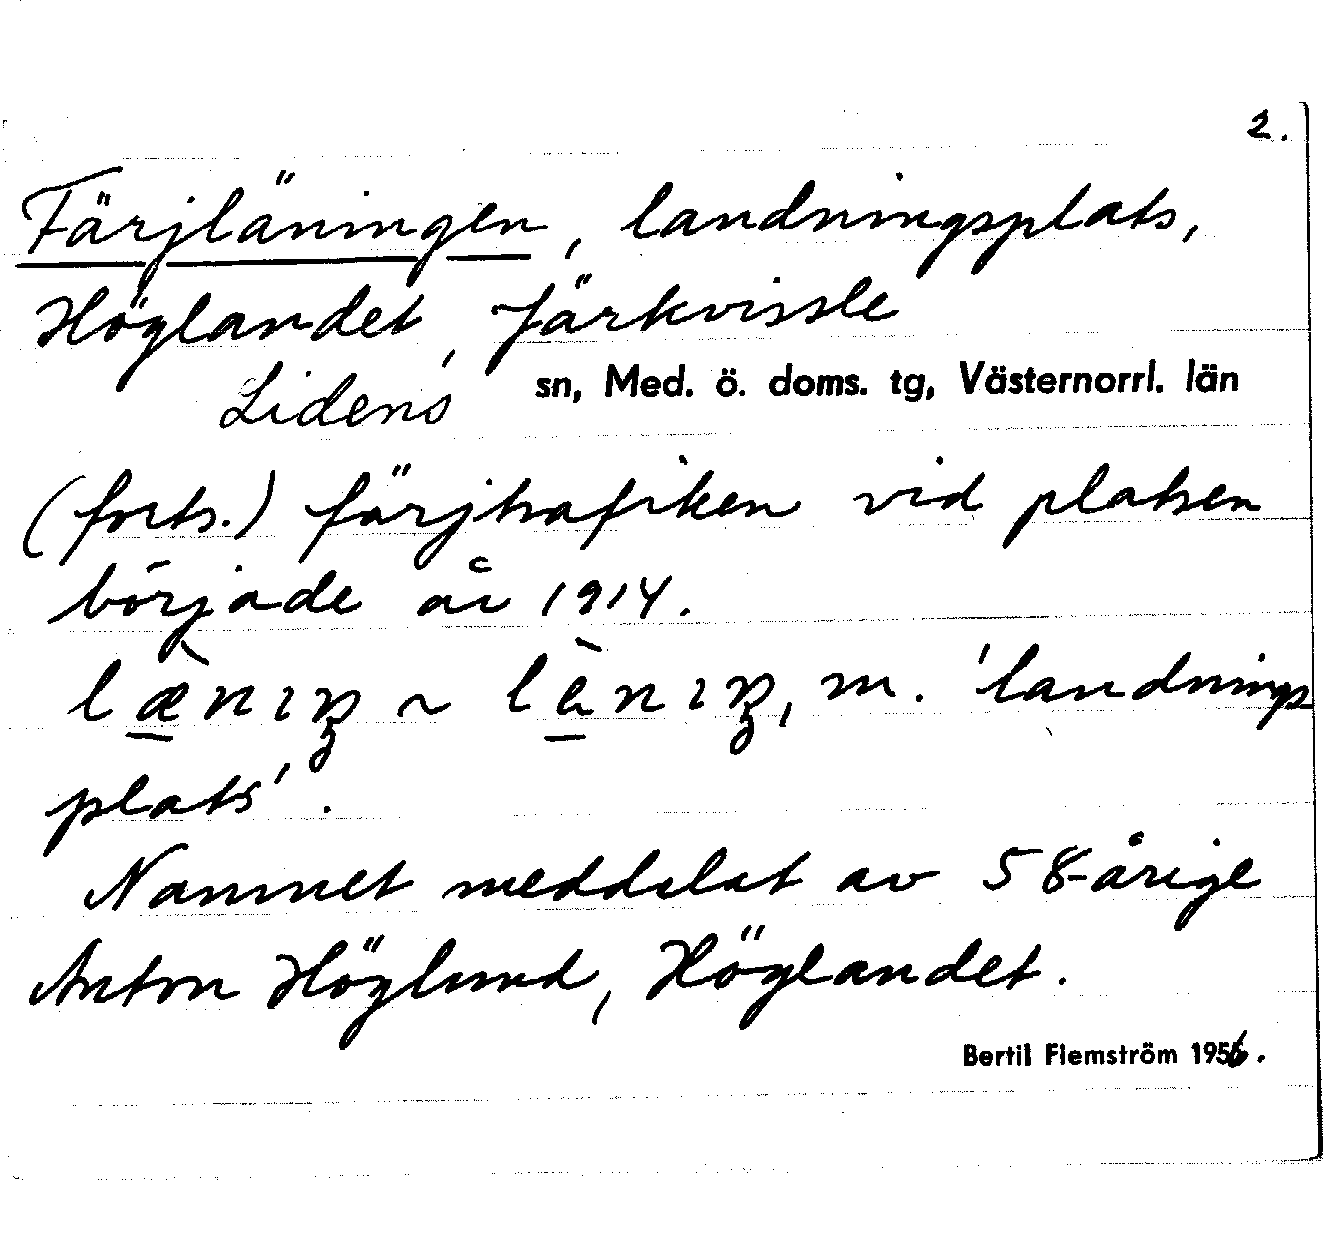 2.
Färjläningen, landningsplats,
Höglandet, Järkvissle
Lidens sn, Med. ö. doms. tg, Västernorrl. län
(forts.) färjtrafiken vid platsen
började år 1914.
m. 'landnings
plats'.
Namnet meddelat av 58-årige
Anton Höglund, Höglandet.
Bertil Flemström 1956.